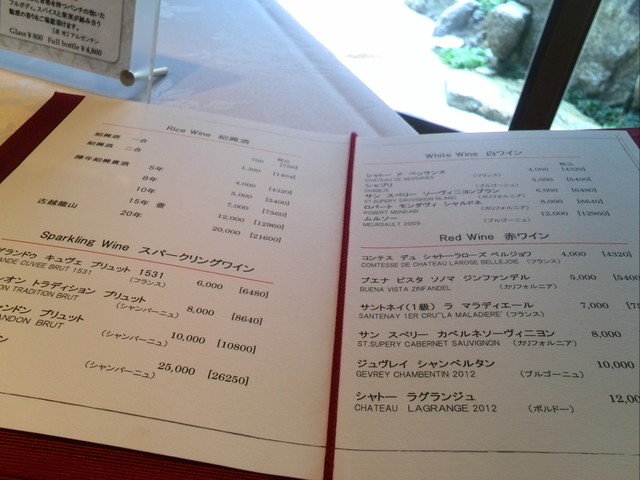 フルボディ。スパイスと果実が絡み合う
魅惑の香りをご堪能頂けます。
Glass ¥800 Full bottle ¥4,800
Rice Wine 紹興酒
税込
紹興酒 一合
紹興酒 二合 1,300 [1404]
陳年紹興貴酒 5年 4,000 [4320]
8年 5,000 [5400]
10年 7,000 [7560]
15年 壷 12,000 [12960]
古越龍山 20年 20,000 [21600]
Sparkling Wine スパークリングワイン
グランドゥ キュヴェ ブリュット 1531 6,000 [6480]
ANDE CUVEE BRUT 1531 (フランス)
オン トラディション ブリュット 8,000 [8640]
ON TRADITION BRUT (シャンパーニュ)
ンドン ブリュット 10,000 [10800]
ANDON BRUT (シャンパーニュ)
ン 25,000 [26250]
(シャンパーニュ)
White Wine 白ワイン
税込
シャトー ド 4,000 [4320]
(フランス)
シャブリ 5,000 [5400]
CHABLIS (ブルゴーニュ)
サン スペリー ソーヴィニヨンブラン 6,000 [6480]
ST.SUPERY SAUVIGNON BLANC (カリフォルニア)
ロバート モンダヴィ シャルドネ 8,000 [8640]
ROBERT MONDAVI (カリフォルニア)
ムルソー 12,000 [12960]
MEURSAULT 2009 (ブルゴーニュ)
Red Wine 赤ワイン
コンテス デュ シャトーラローズ ベルジョウ 4,000 [4320]
COMTESSE DE CHATEAU LAROSE BELLEJOIE, (フランス)
ブエナ ビスタ ソノマ ジンファンデル 5,000 [5400
BUENA VISTA ZINFANDEL (カリフォルニア)
サントネイ(1級) ラ マラディエール 7,000 [75
SANTENAY 1ER CRU"LA MALADIERE" (フランス)
サン スペリー カベルネソーヴィニヨン 8,000
ST.SUPERY CABERNET SAUVIGNON (カリフォルニア)
ジュヴレイ シャンベルタン 10,000
GEVREY CHAMBENTIN 2012 (ブルゴーニュ)
シャトー ラグランジュ 12,00
CHATEAU LAGRANGE 2012 (ボルドー)